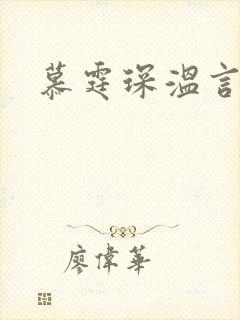 慕霆琛溫言
廖偉華